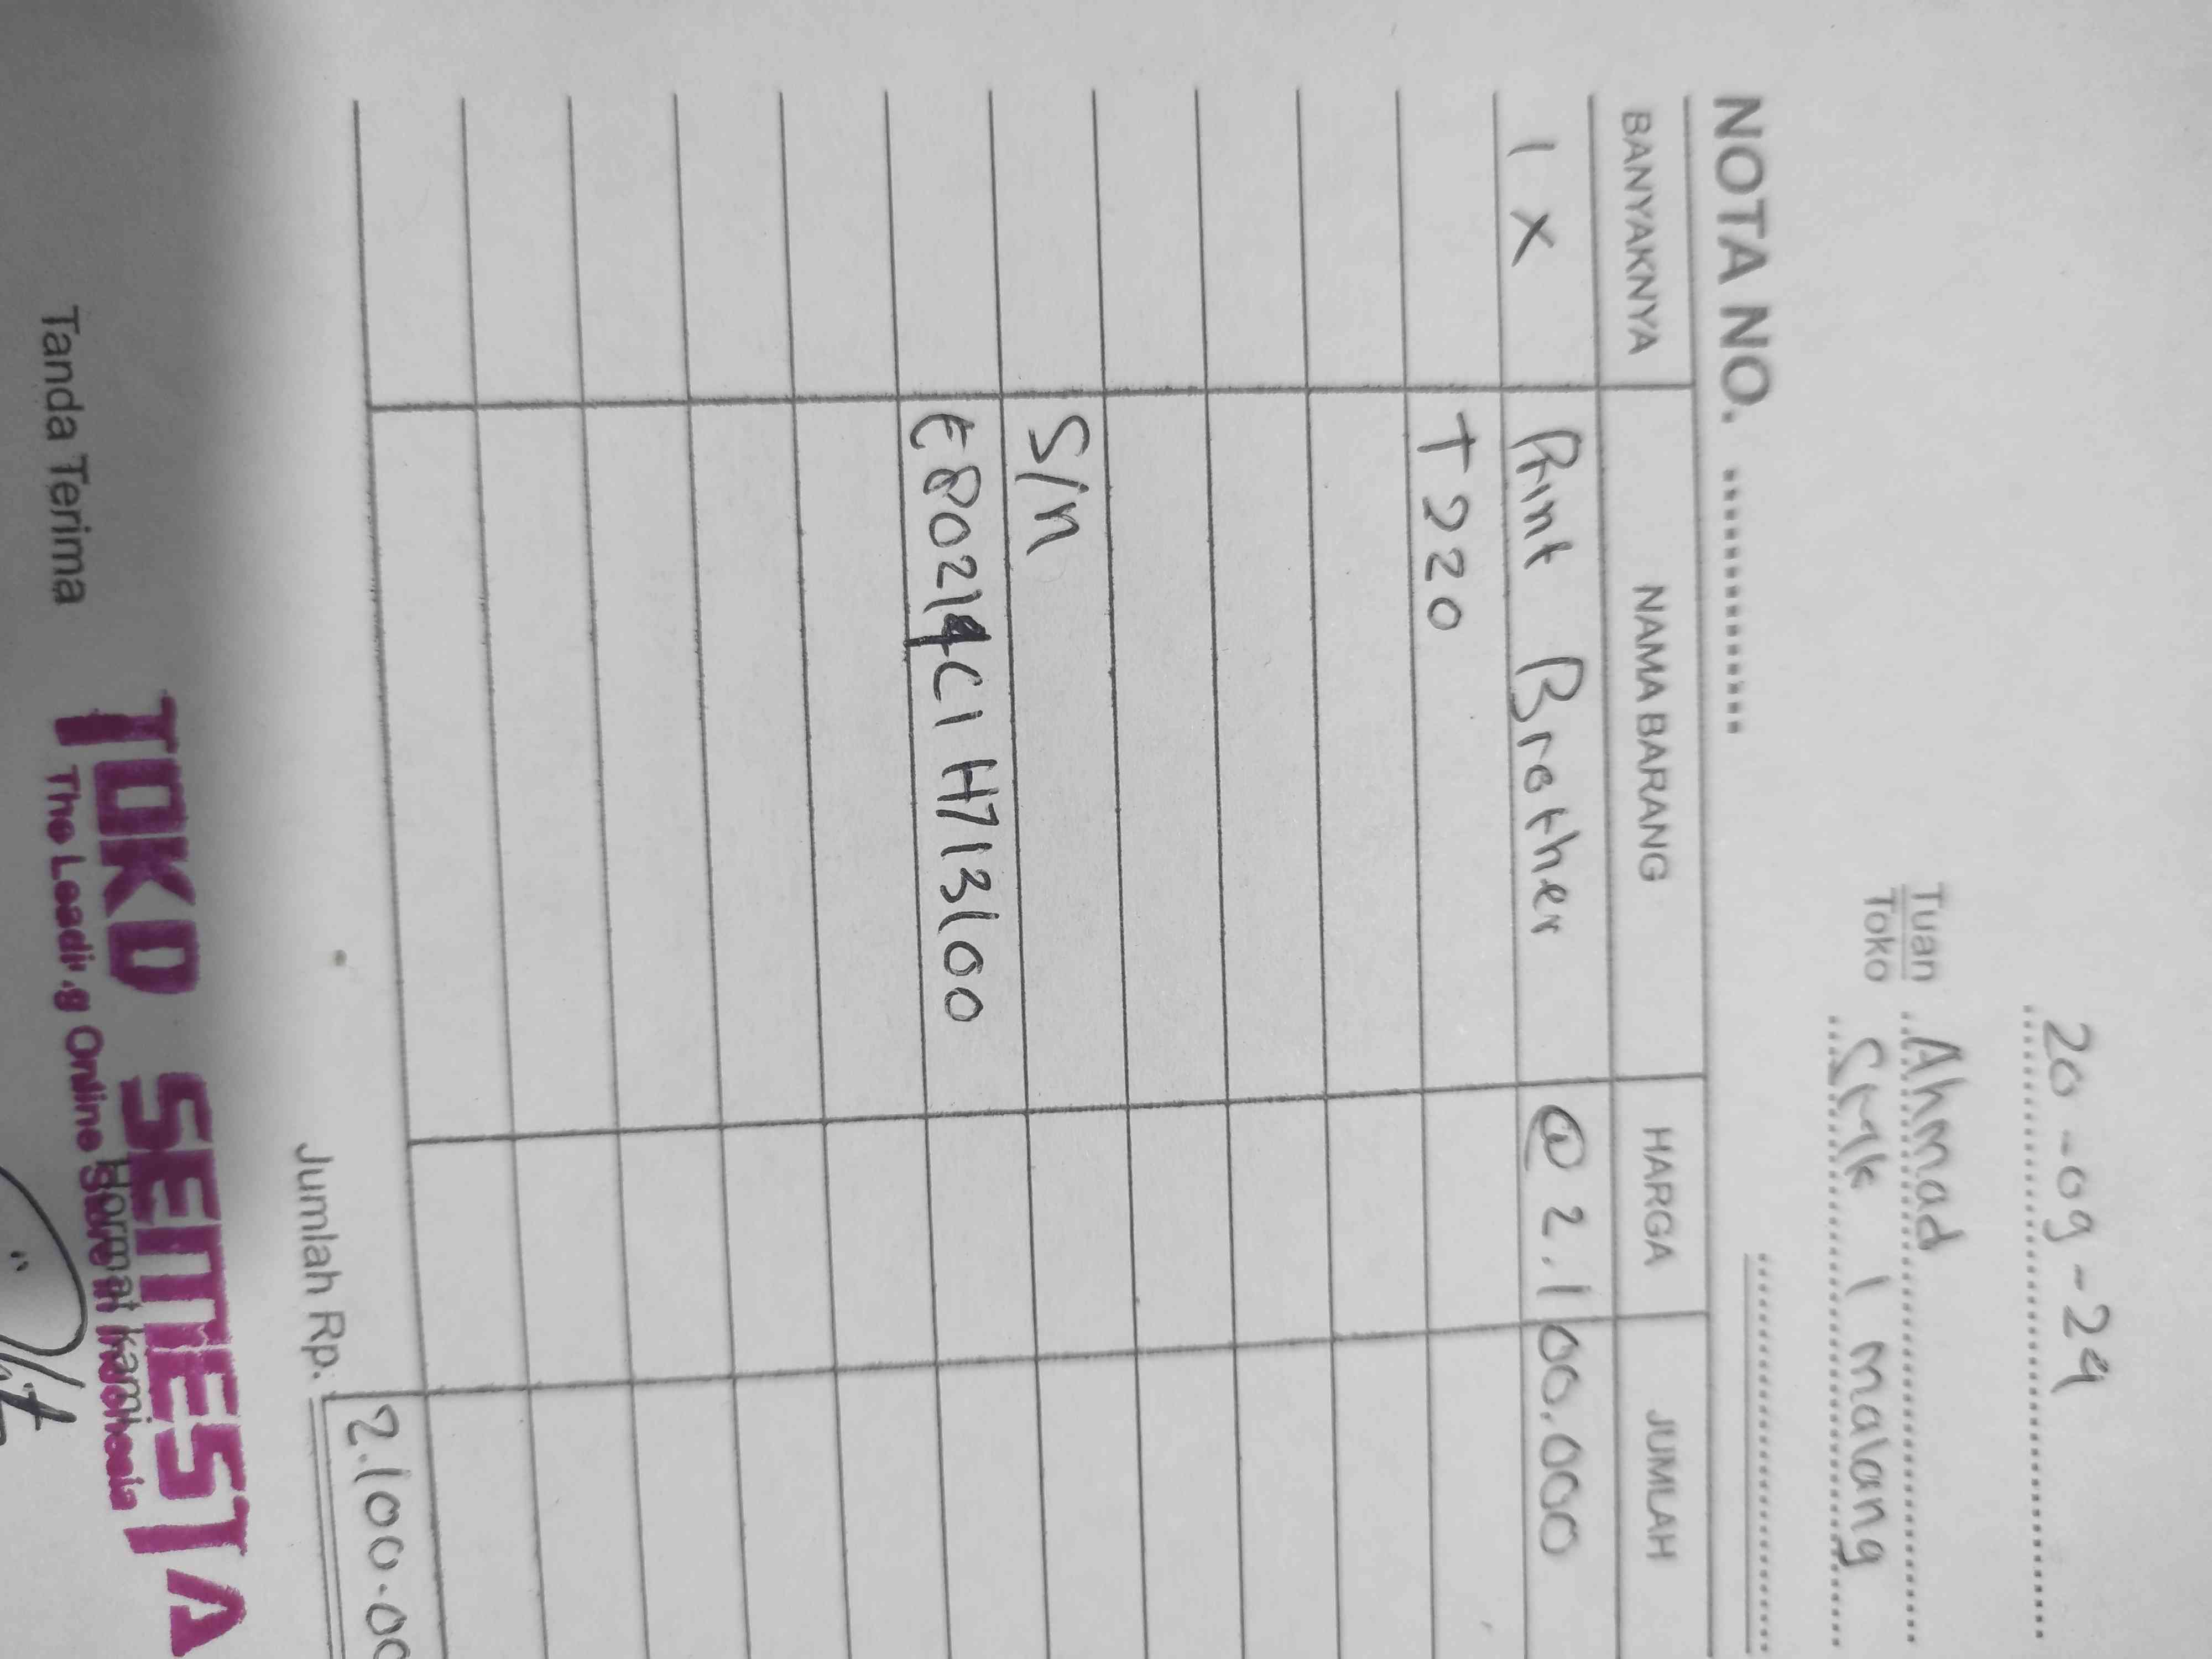 20-09-24
Tuan Ahmad
Toko SMK 1 malang
NOTA NO.
BANYAKNYA NAMA BARANG HARGA JUMLAH
1 X Print Brother @ 2.100.000
T 220
S/n
Jumlah Rp. 2.100.00
Tanda Terima Hormat kami
TOKO SEMESTA
The Leading Online Store in Indonesia